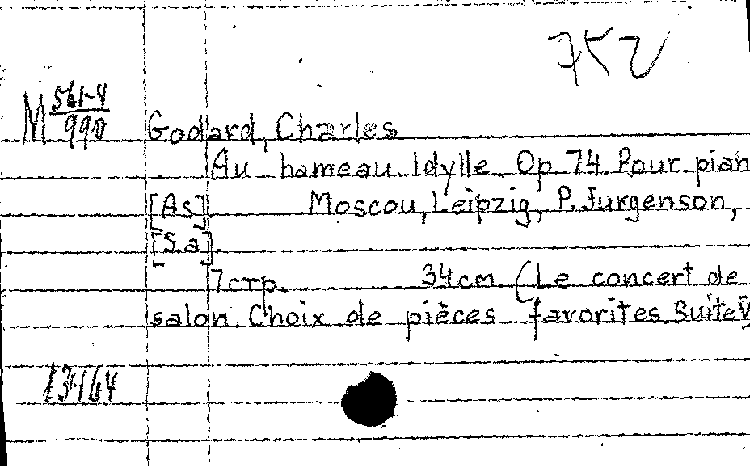 752
M 561-4/990
Godard, Charles
Au hameau. Idylle. Op. 74. Pour pian
[As] Moscou, Leipzig, P. Jurgenson,
[Sa]
7 стр. 34 cm (Le concert de
salon. Choix de pièces favorites. Suite V